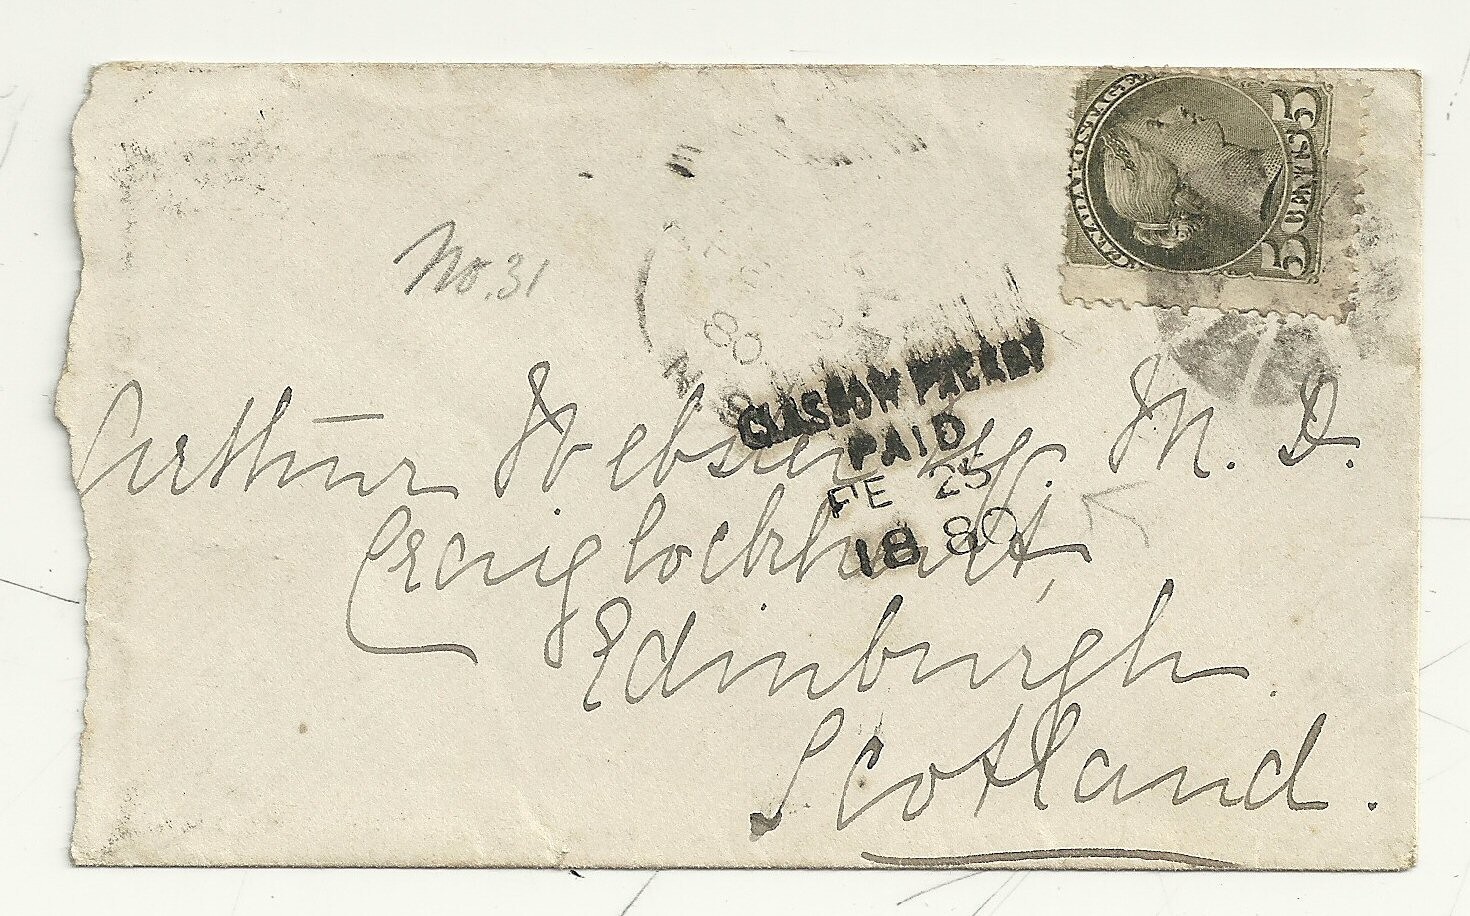 CANADA POSTAGE
5 CENTS 5
No. 31
80
GLASGOW PACKET
PAID
FE 25
1880
Arthur M. D.
Craiglockhart,
Edinburgh
Scotland.